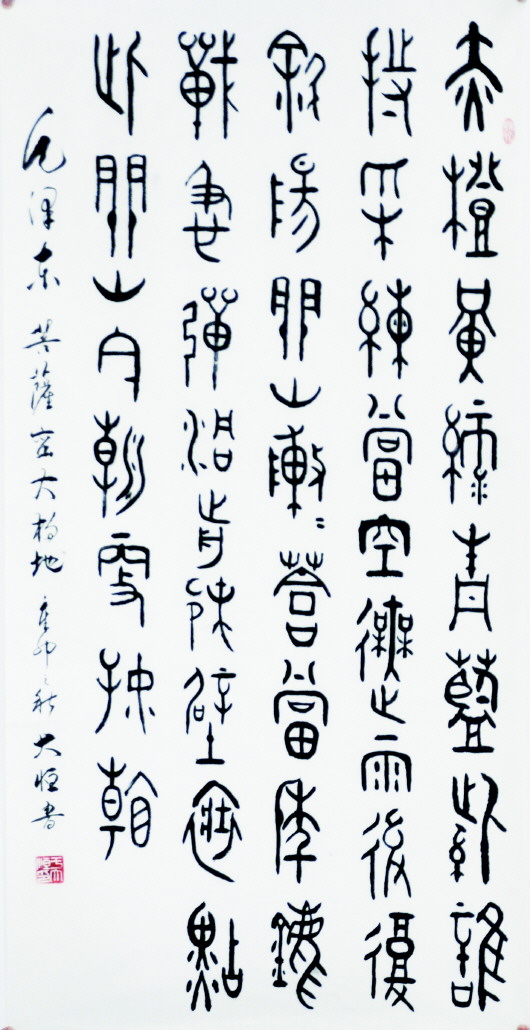 赤橙黃綠青藍紫誰
持采練當空舞雨後復
斜陽關山陣〻蒼當年鏖
戰急彈洞前村壁裝點
此關山今朝更好看
毛泽东 菩薩蛮大柏地 辛卯之秋 大恒書